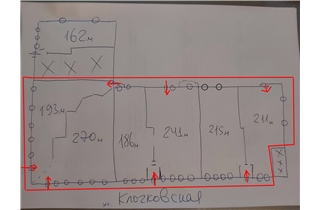 162м
X X X
193м
270м
186м
241м
215м
211м
x x x
ул. Клочковская